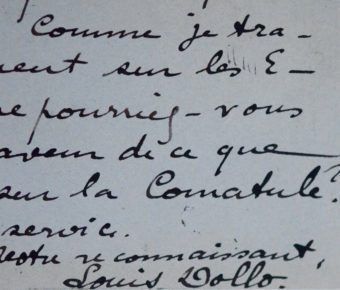 Comme je tra-
ment sur les E-
ne pourriez-vous
aveur de ce que
sur la Comatule?
service.
Votre reconnaissant,
Louis Dollo.